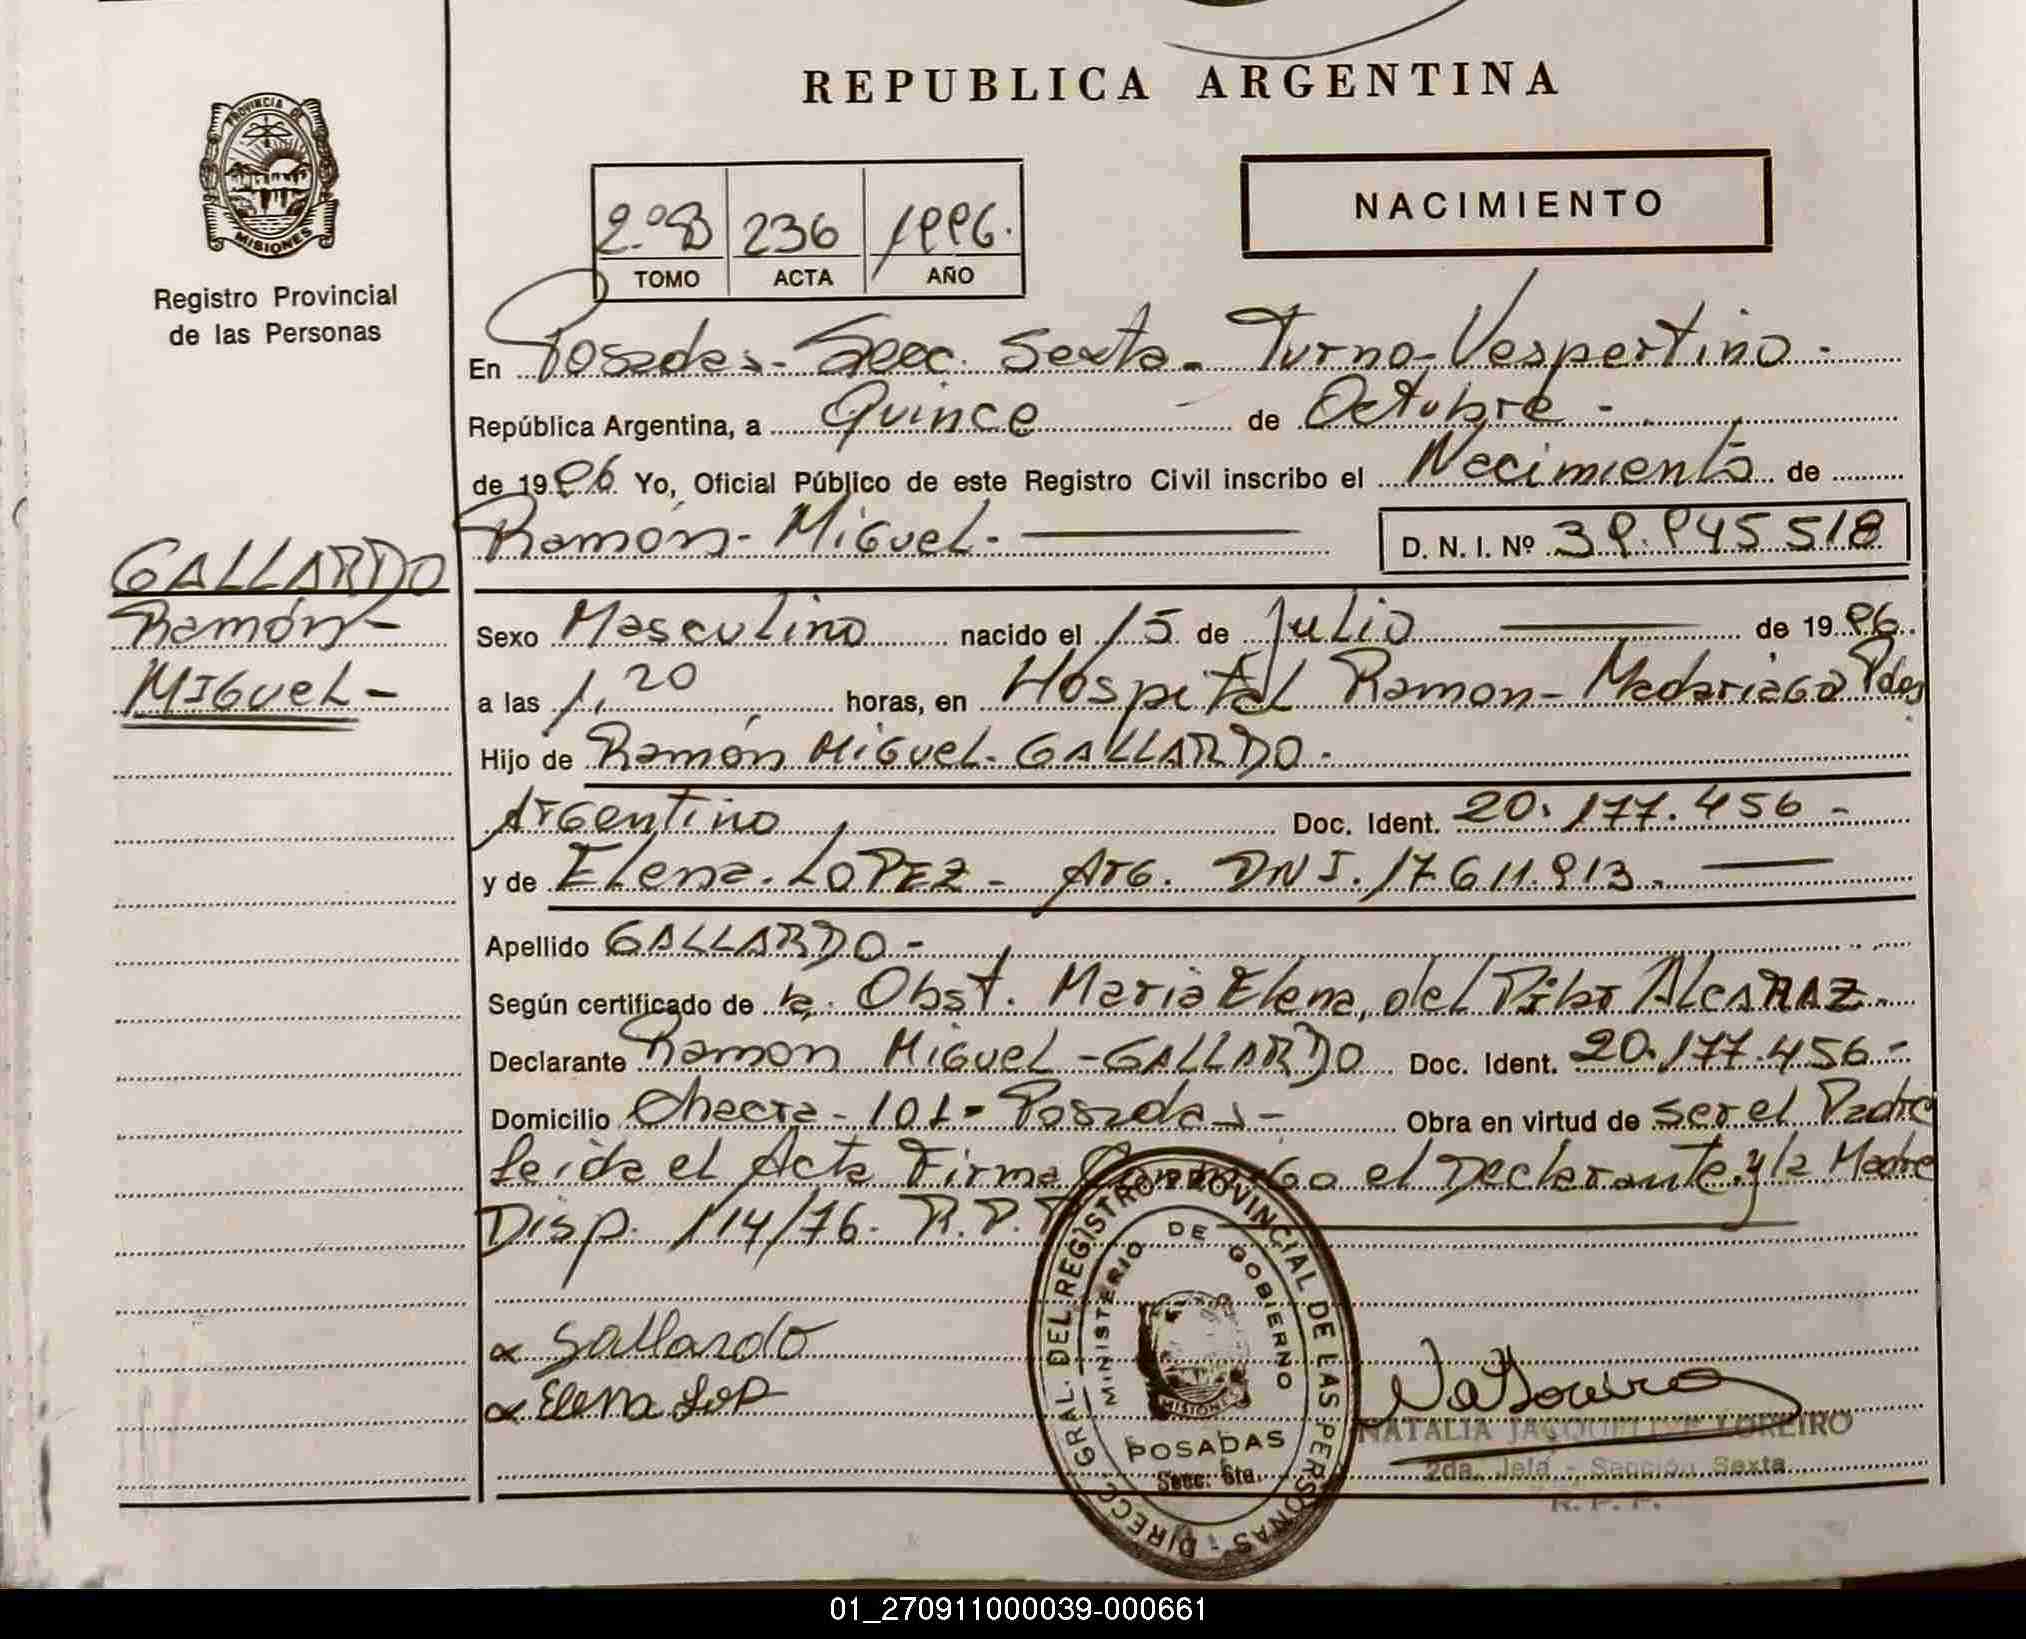 REPUBLICA ARGENTINA
PROVINCIA DE
MISIONES
Registro Provincial
de las Personas
NACIMIENTO
2.º B 236 1996.
TOMO ACTA AÑO
En Posadas - Secc. Sexta - Turno - Vespertino -
República Argentina, a Quince de Octubre -
de 1996 Yo, Oficial Público de este Registro Civil inscribo el Nacimiento de
Ramón - Miguel - D. N. I. Nº 39.945518
GALLARDO
Ramón -
MIGUEL -
Sexo Masculino nacido el 15 de Julio de 1996.
a las 1,20 horas, en Hospital Ramon - Madariaga Pdas
Hijo de Ramón Miguel - GALLARDO -
Argentino Doc. Ident. 20.177.456 -
y de Elena - LOPEZ - Arg. DNI. 17.611.913 -
Apellido GALLARDO -
Según certificado de la Obst. Maria Elena, del Pilar ALCARAZ -
Declarante Ramon Miguel - GALLARDO Doc. Ident. 20.177.456 -
Domicilio Chacra - 101 - Posadas - Obra en virtud de ser el Padre
Leida el Acta Firma Conmigo el Declarante y la Madre
Disp. 114/76 - R.P.P
Gallardo
Elena Lop
DIRECC. GRAL. DEL REGISTRO PROVINCIAL DE LAS PERSONAS
MINISTERIO DE GOBIERNO
MISIONES
POSADAS
Secc. 6ta.
NATALIA JACQUELINE LOREIRO
2da. Jefa - Sección Sexta
R. P. P.
01_270911000039-000661